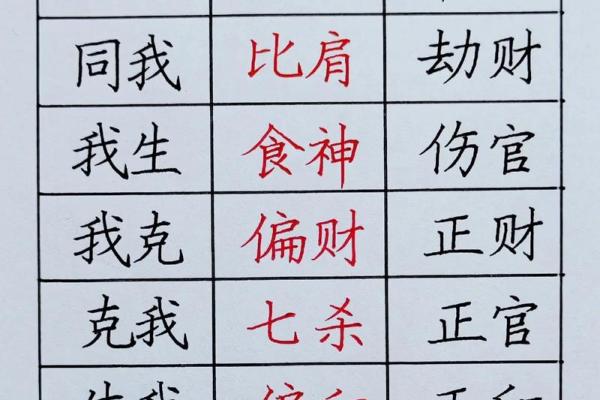 同我 比肩 劫财
我生 食神 伤官
我克 偏财 正财
克我 七杀 正官